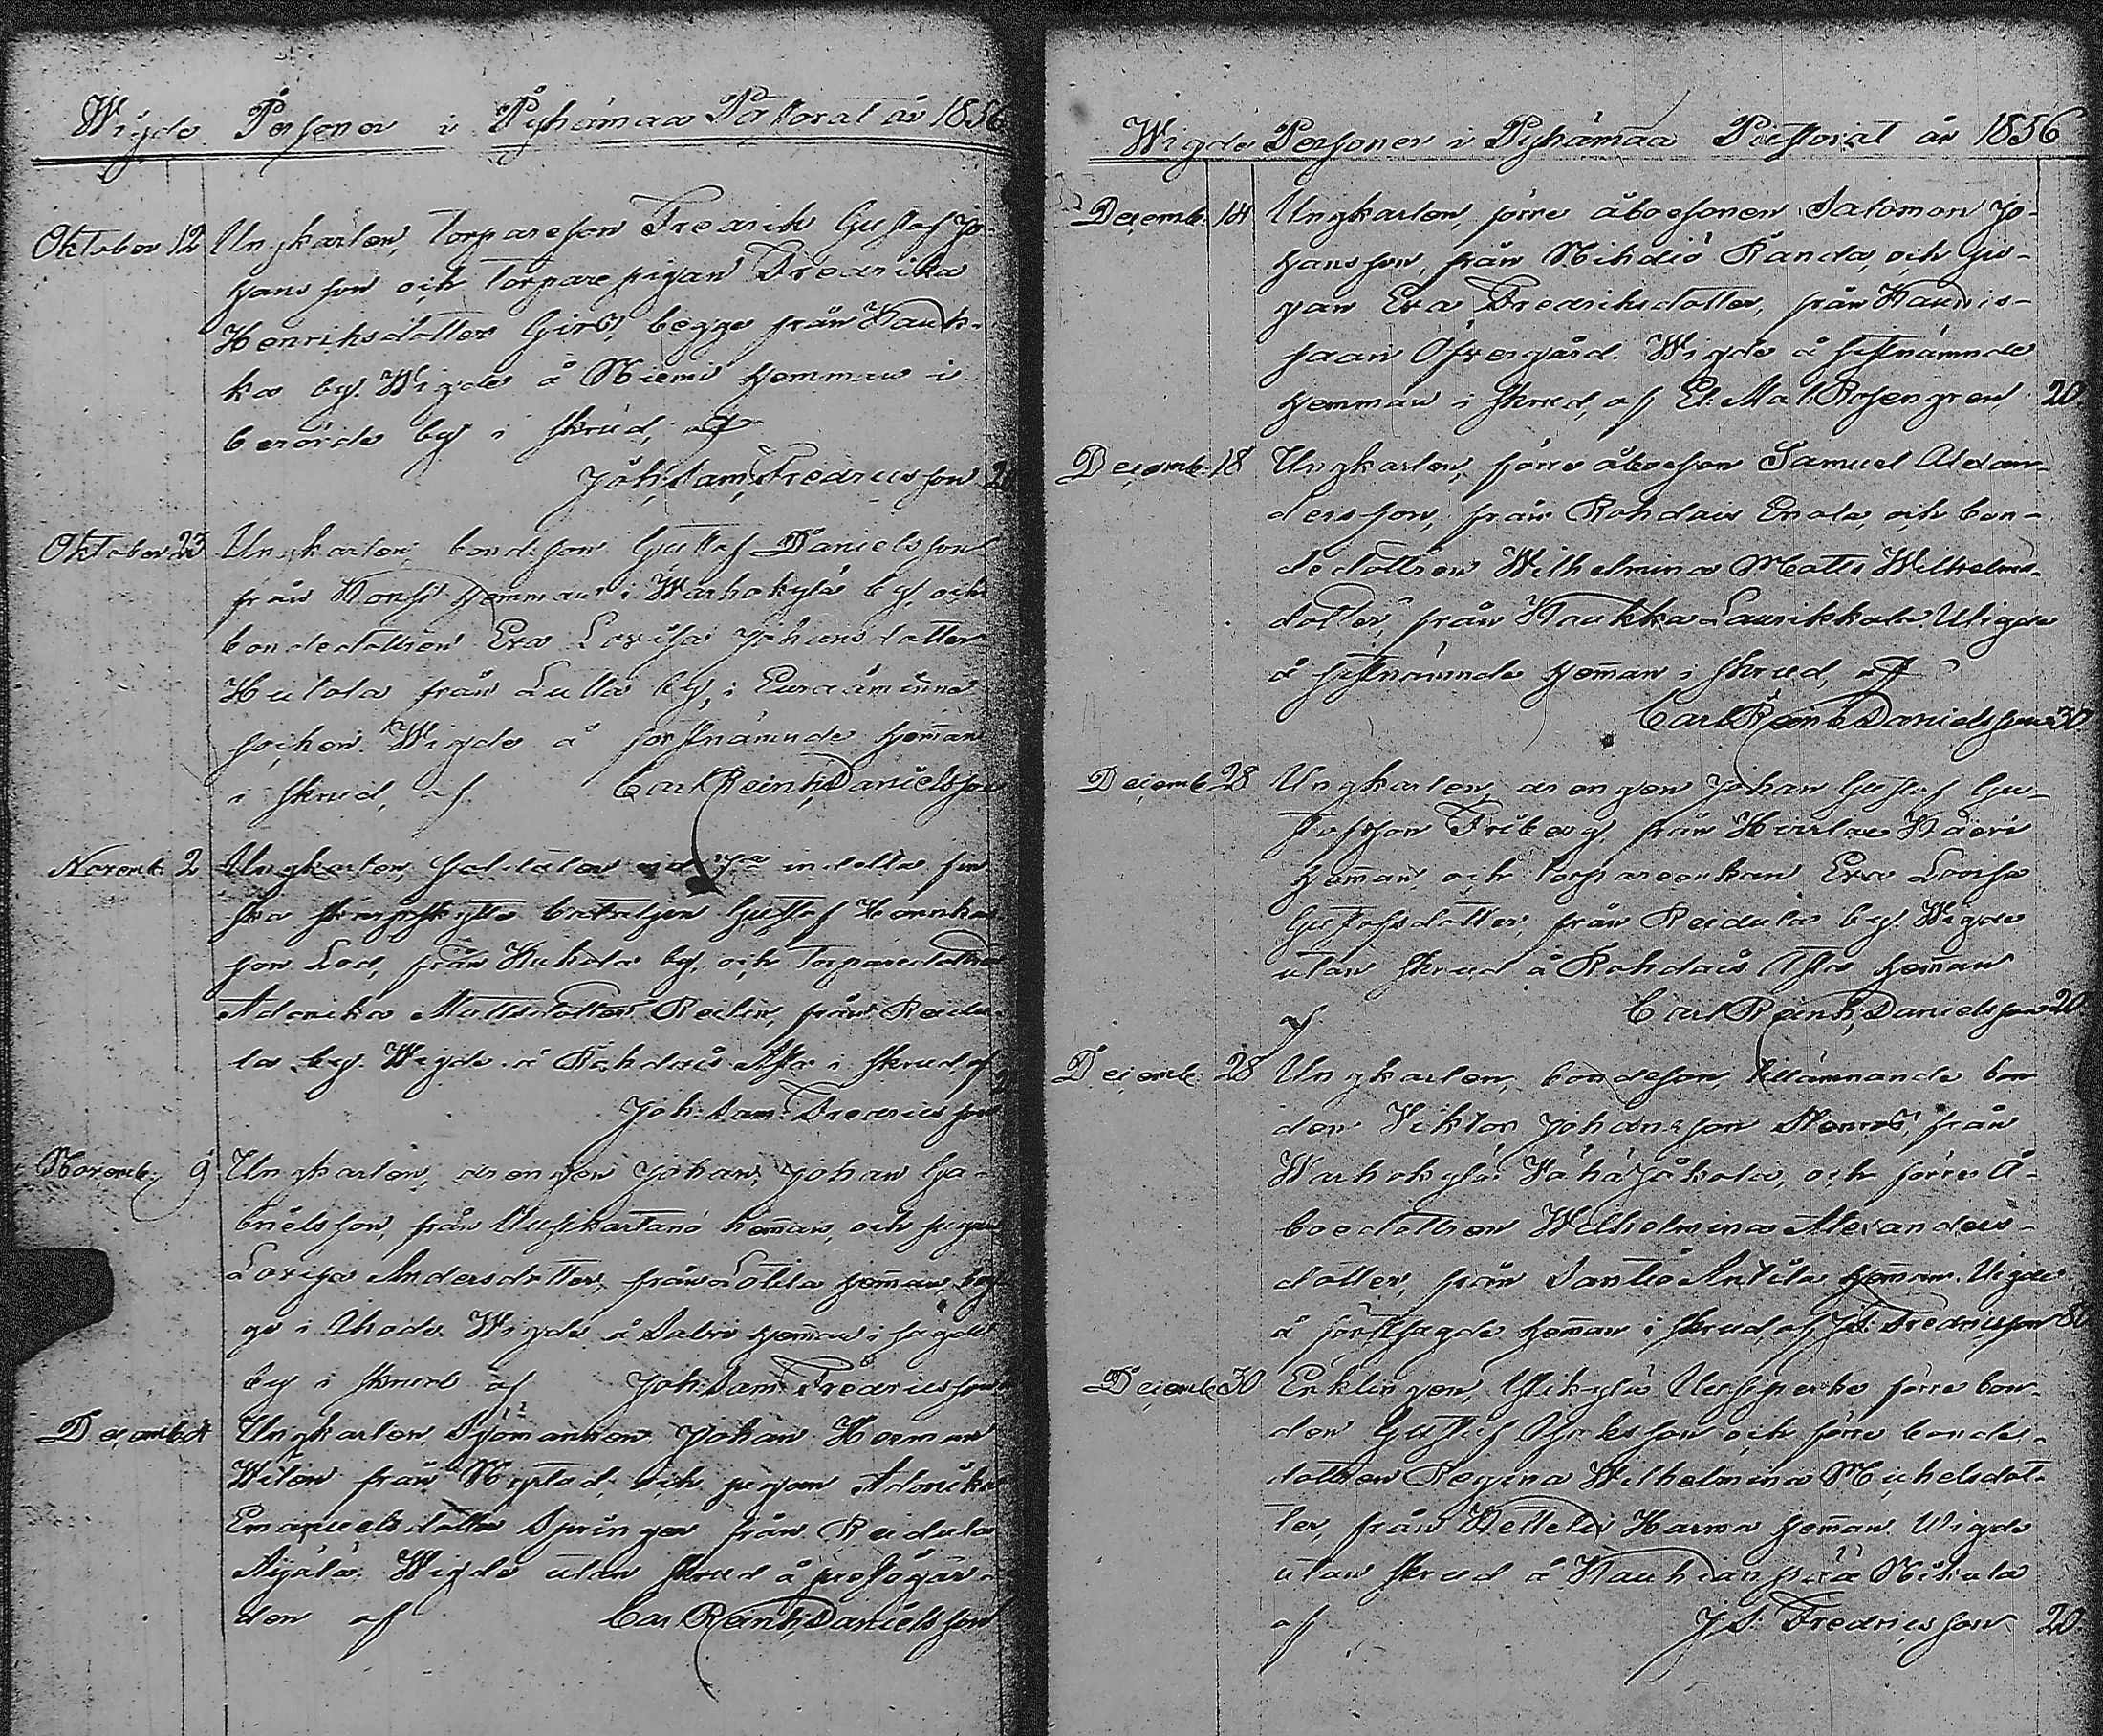 Wigde Personer i Pyhämaa Pastorat år 1856
Oktober 12 Ungkarlen, torpareson Fredrik Gustaf Jo-
hansson och torparepigan Fredrika
Henriksdotter Girs, begge från Kauk-
ka by. Wigde å Niemi hemman i
berörde by i skrud, af
Joh. Sam. Fredricsson 20
Oktober 23 Ungkarlen, bondeson Gustaf Danielsson
från Konsi hemman i Warhokylä by, och
bondedottren Eva Lovisa Johansdotter
Hutola från Lutta by, i Euraåminne
socken. Wigde å förstnämnde hemman
i skrud, af Carl Reinh. Danielsson
Novemb. 2 Ungkarlen, soldaten vid 7:a indelta fin-
ska skarpskytte bataljon Gustaf Henriks
son Lod, från Kukola by, och torparedottren
Adonika Mattsdotter Reilin, från Reidu-
la by. Wigde å Rohdais i skrud af
Joh. Sam. Fredricsson
Novemb. 9 Ungkarlen, drengen Johan, Johan Ga-
brielsson, från Uusikartano hemman, och pigan
Lovisa Andersdotter, från Lotila hemman, beg
ge i Ihode. Wigde å Salvi hemman i sagde
by i skrud af Joh. Sam. Fredricsson
Decemb. 4 Ungkarlen, Sjömannen Johan Herman
Wilen från Nystad, och pigan Adonika
Emanuelsdotter Springer från Reidula
Äijälä. Wigde utan skrud å prestgår-
den af Carl Reinh. Danielsson
Wigde Personer i Pyhämaa Pastorat år 1856
Decemb. 14 Ungkarlen, förre åboesonen Salomon Jo-
hansson, från Nihdiö Randa, och pi-
gan Eva Fredriksdotter, från Kaunis-
saari Öfvergård. Wigde å sistnämnde
hemman i skrud, af El. Mat. Rosengren 20
Decemb. 18 Ungkarlen, förre åboeson Samuel Alexan-
dersson, från Rohdais Enola, och bon-
dedottren Wilhelmina Matts Wilhelms-
dotter, från Kaukka Laurikkala. Wigde
å sistnämnde hemman i skrud, af
Carl Reinh. Danielsson 30
Decemb. 28 Ungkarlen, drengen Johan Gustaf Gu-
stafsson Friberg, från Hirslax Kaori
hemman, och torpareenkan Eva Lovisa
Gustafsdotter, från Reidula by. Wigde
utan skrud å Rohdais hemman
af Carl Reinh. Danielsson 20
Decemb. 28 Ungkarlen, bondeson, tillämnande bon-
den Viktor Johansson Stenros, från
Warhokylä Vähä Jåkola, och förre å-
boedottren Wilhelmina Alexanders-
dotter, från Santio Antila hemman. Wigde
å förstsagde hemman i skrud, af J. S. Fredricsson 80
Decemb. 30 Enklingen, Ylikylä Uusiperko förre bon-
den Gustaf Jakobsson och förre bonde-
dottren Regina Wilhelmina Michelsdot-
ter, från Kettelä Harma hemman. Wigde
utan skrud å Kauhianpää Nikula
af J. S. Fredricsson 20